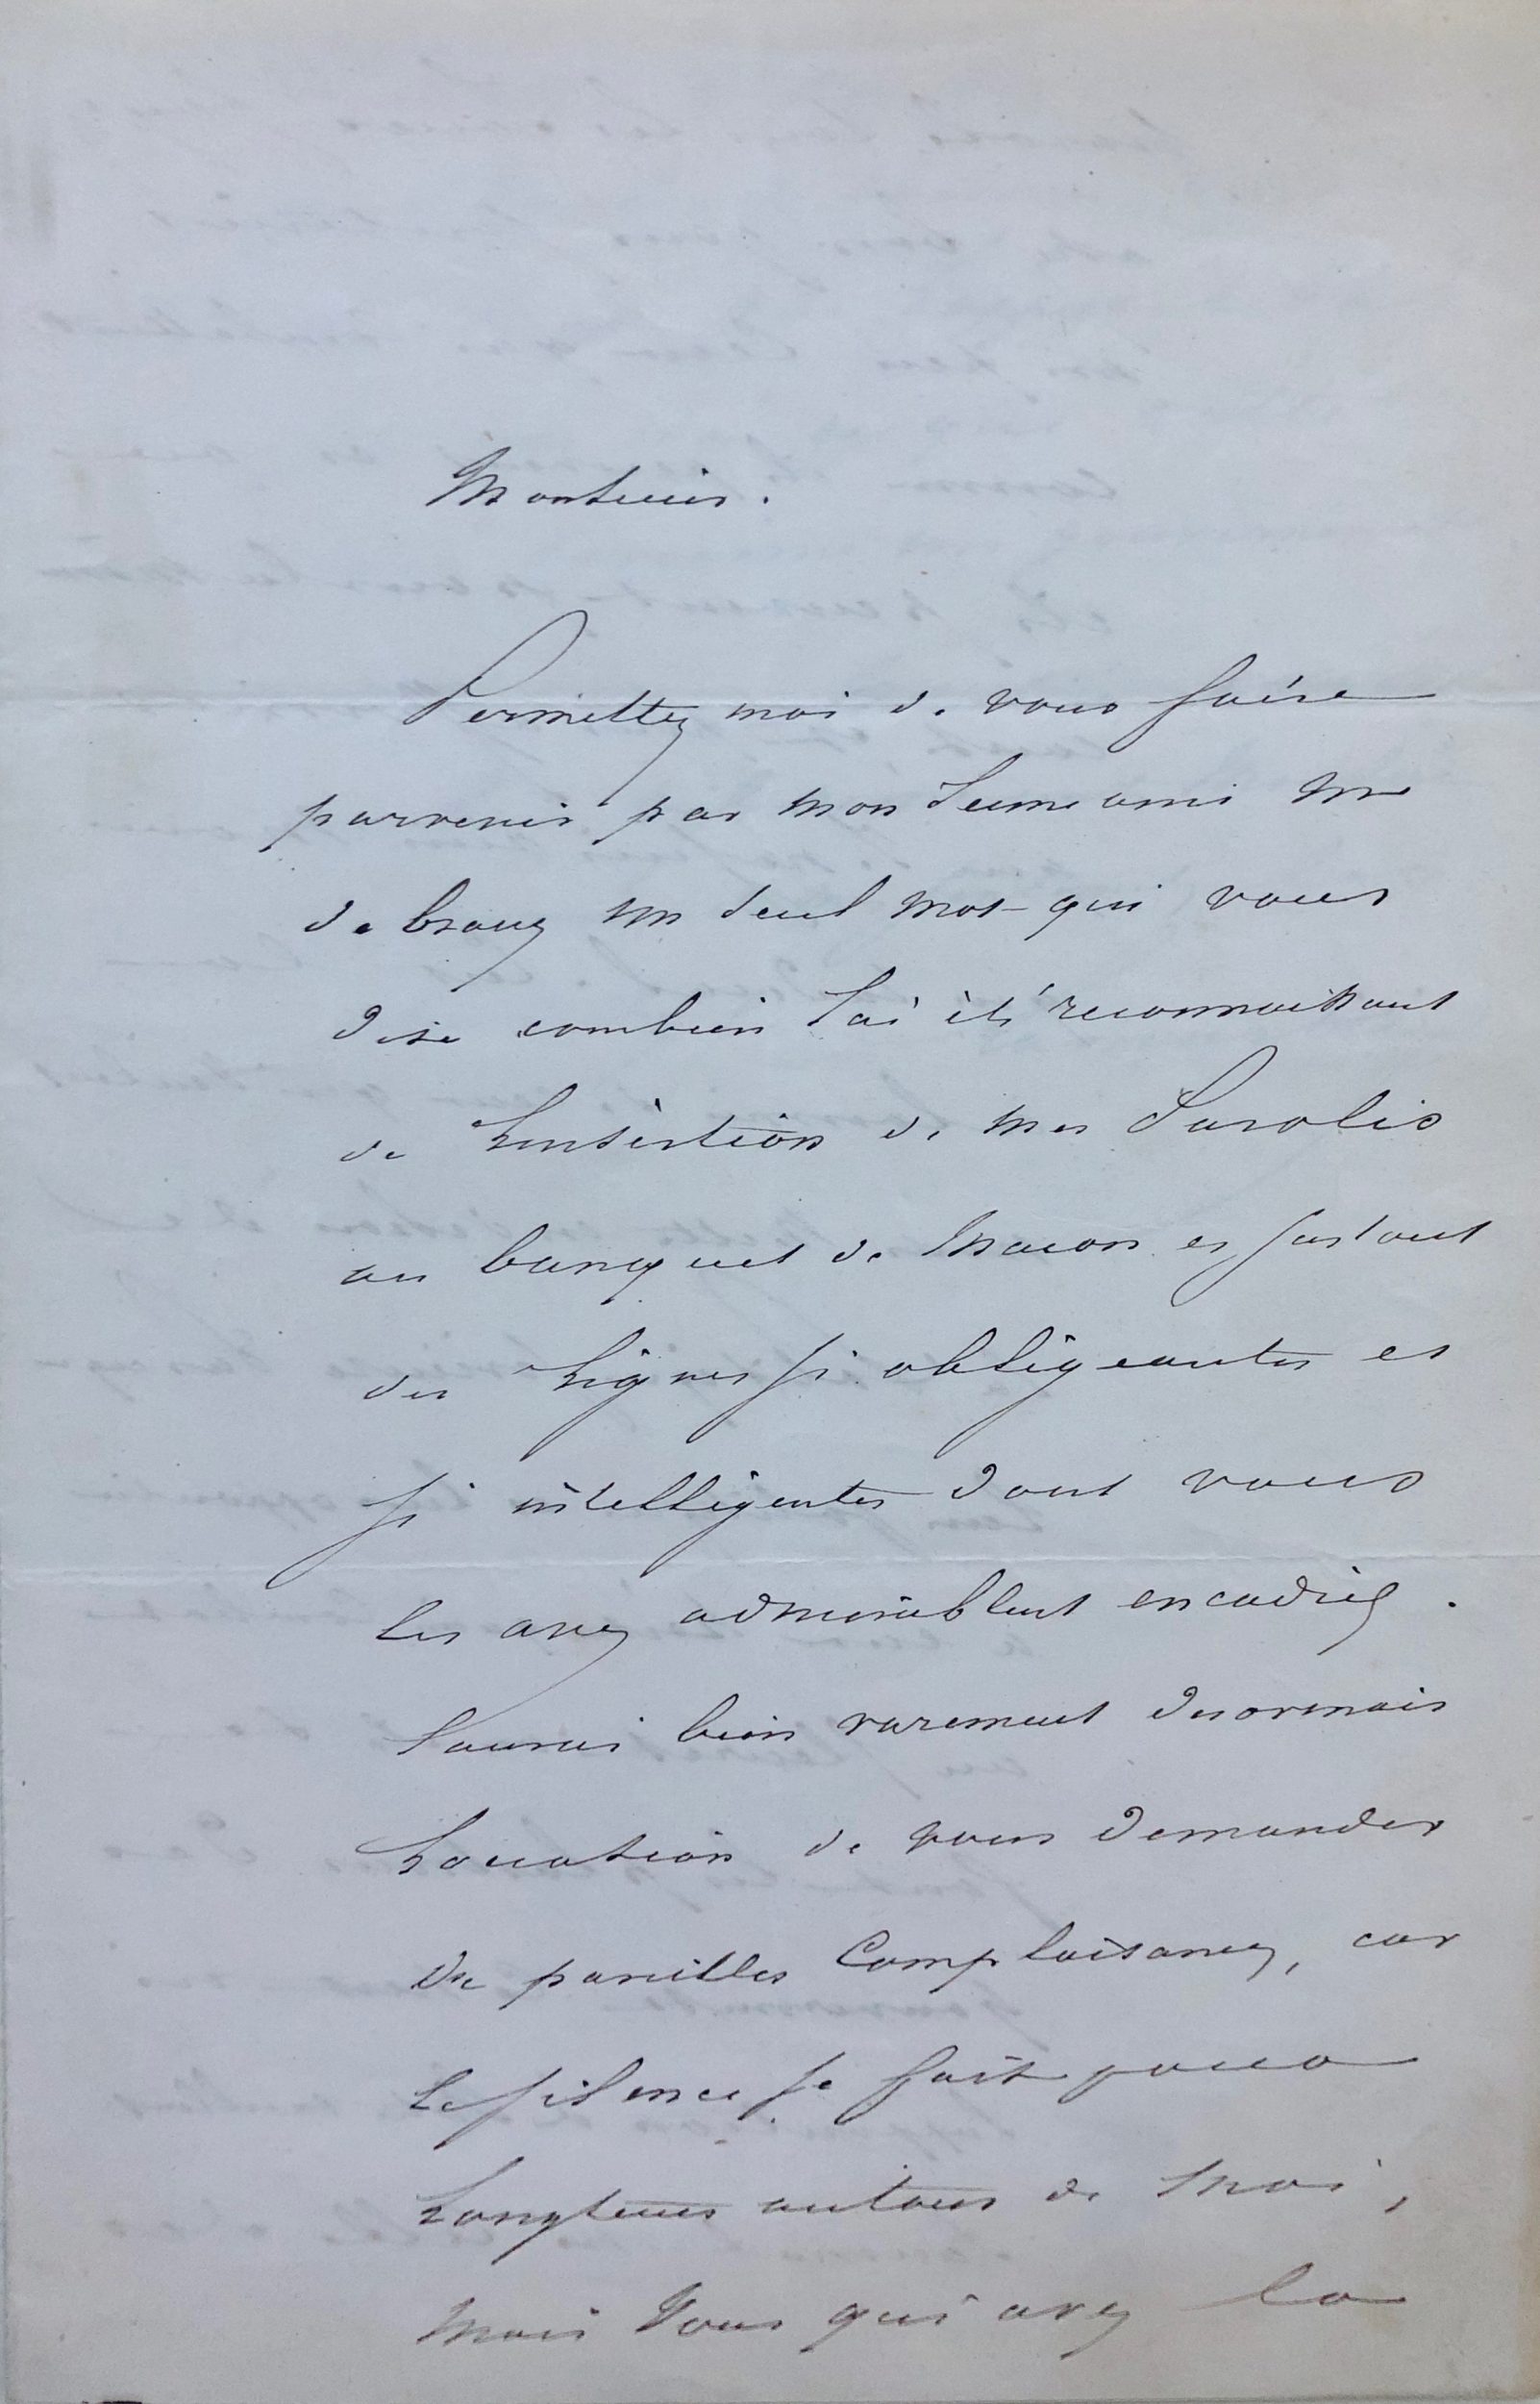 Monsieur.
Permettez moi de vous faire
parvenir par mon jeune ami Mr
de un seul mot qui vous
dise combien j'ai été reconnaissant
de l'insertion de mes Paroles
au banquet de Macon et surtout
des lignes si obligeantes et
si intelligentes dont vous
les avez admirablemt encadrés.
J'aurai bien rarement desormais
L'occasion de vous demander
de pareilles Complaisances, car
Le silence se fait pour
Longtems autour de moi,
Mais Vous qui avez la